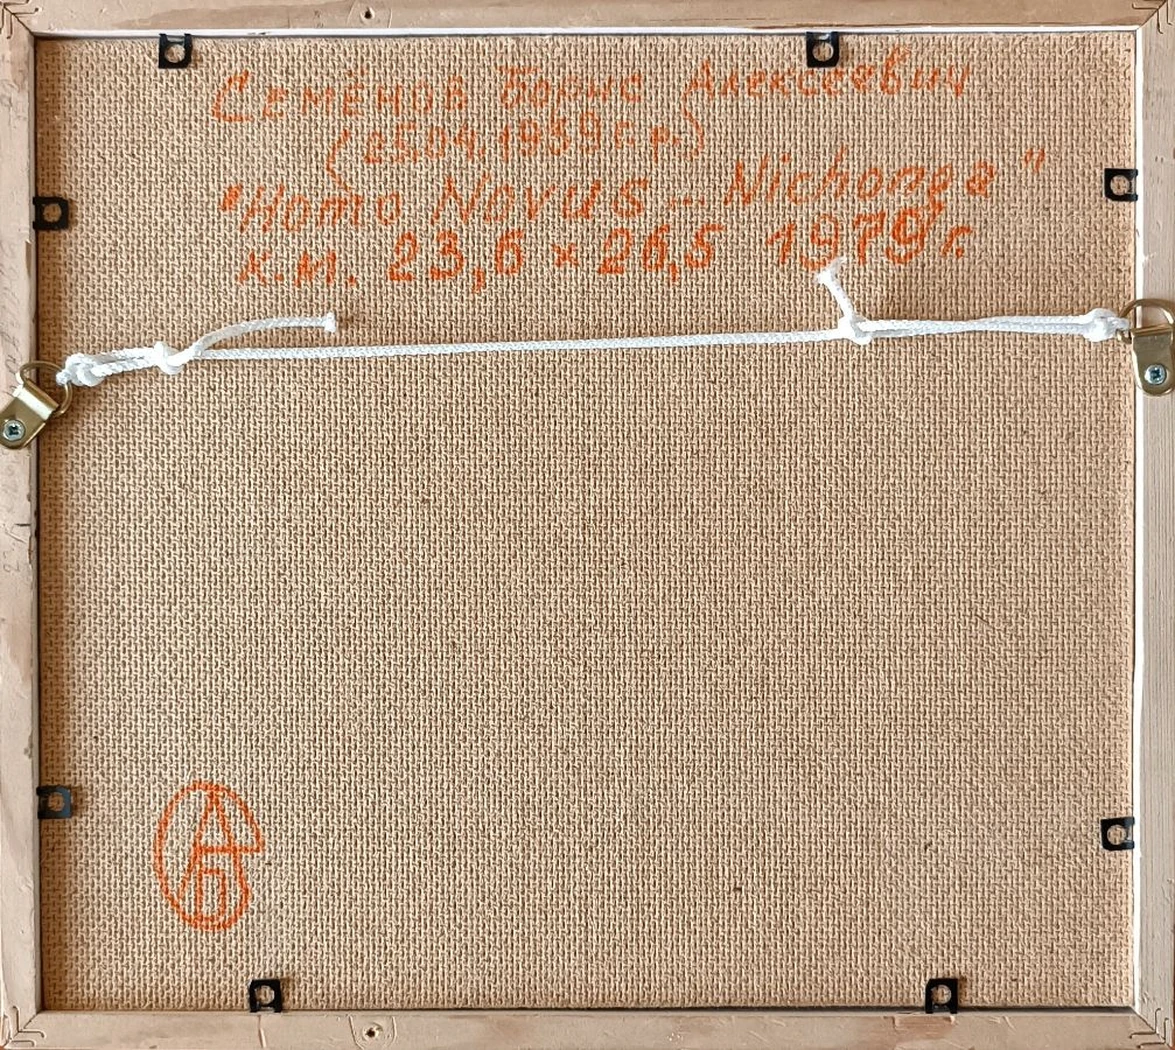 Семёнов Борис Алексеевич
(25.04.1939г.р.)
"Homo Novus – Nichonga"
к.м. 23,6 × 26,5 1979г.